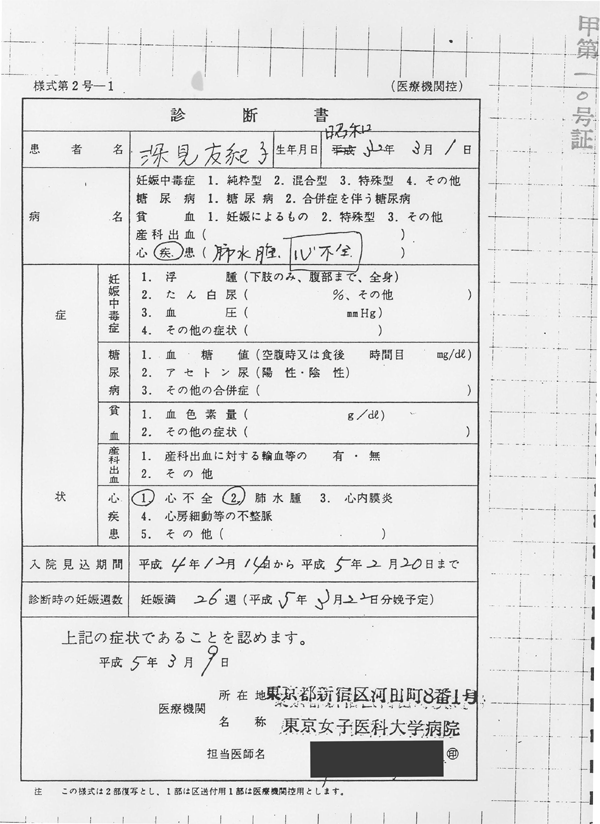 甲第一〇号証
様式第2号―1
(医療機関控)
診断書
患者名 深見友紀子 生年月日 昭和 平成 32年 3月 1日
病名
妊娠中毒症 1. 純粋型 2. 混合型 3. 特殊型 4. その他
糖尿病 1. 糖尿病 2. 合併症を伴う糖尿病
貧血 1. 妊娠によるもの 2. 特殊型 3. その他
産科出血 ( )
心疾患 ( 肺水腫. 心不全 )
症状
妊娠中毒症
1. 浮腫 (下肢のみ、腹部まで、全身)
2. たん白尿 ( %、その他 )
3. 血圧 ( mmHg)
4. その他の症状 ( )
糖尿病
1. 血糖値 (空腹時又は食後 時間目 mg/dℓ)
2. アセトン尿 (陽性・陰性)
3. その他の合併症 ( )
貧血
1. 血色素量 ( g/dℓ)
2. その他の症状 ( )
産科出血
1. 産科出血に対する輸血等の 有・無
2. その他
心疾患
1. 心不全 2. 肺水腫 3. 心内膜炎
4. 心房細動等の不整脈
5. その他 ( )
入院見込期間 平成 4年12月14日から 平成 5年2月20日まで
診断時の妊娠週数 妊娠満 26週 (平成 5年 3月22日分娩予定)
上記の症状であることを認めます。
平成 5年 3月 9日
医療機関
所在地 東京都新宿区河田町8番1号
名称 東京女子医科大学病院
担当医師名 印
注 この様式は2部複写とし、1部は区送付用1部は医療機関控用とします。